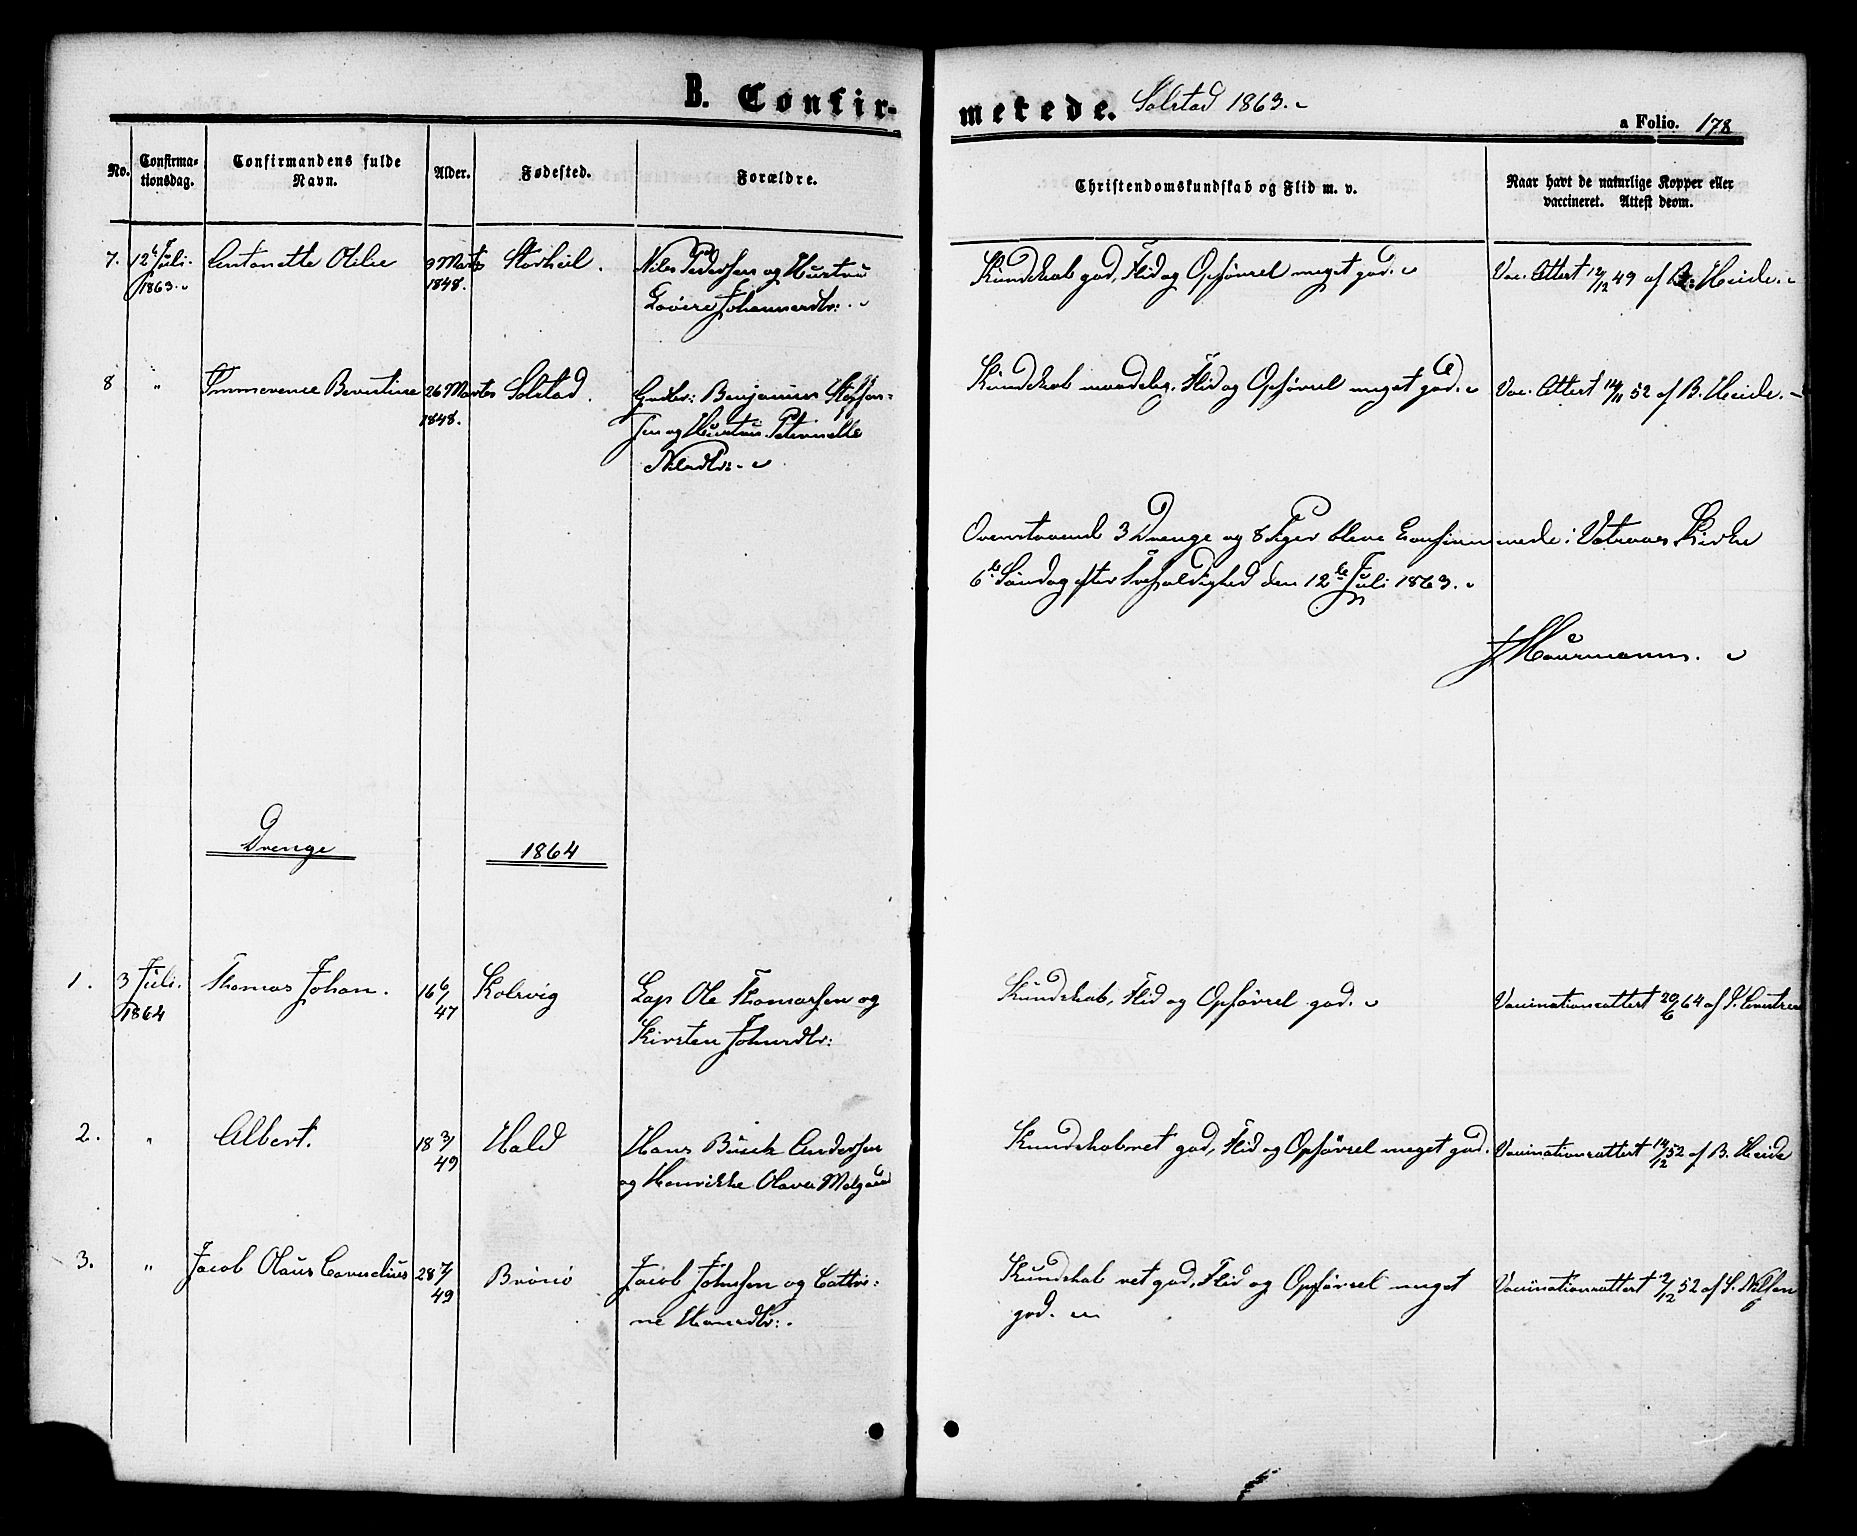 B. Confirmerede. Solstad 1863.
a Folio. 178
No. Confirmationsdag. Confirmandens fulde Navn. Alder. Fødested. Forældre. Christendomskundskab og Flid m. v. Naar havt de naturlige Kopper eller vaccineret. Attest derom.
7. 12te Juli 1863. Antonette Otilie 9 Marts 1848. Storheil. Niels Pedersen og Hustru
Johannesdtr:
Kundskab god, Flid og Opførsel meget god.
Vac. Attest 12/12 49 af B. Heide.
8 " Berntine 26 Marts 1848. Solstad. Gmdr: Benjamin Steffen=
sen og Hustru Peternelle
Nilsdtr:
Kundskab maadelig. Flid og Opførsel meget god.
Vac. Attest 14/11 52 af B. Heide.
Ovenstaaende 3 Drenge og 8 Piger bleve Confirmerede i Kirke
6te Søndag efter Trefoldighed den 12te Juli 1863.
Maurmann.
Drenge 1864
1. 3 Juli 1864 Thomas Johan. 16 6/47 Kolsvig Lap Ole Thomassen og
Kirsten Johnsdtr:
Kundskab, Flid og Opførsel god.
Vaccinationsattest 20/6 64 af
2. " Albert. 18 3/49 Hald Hans Busch Andersen
og Henrikke Olava
Kundskab ret god, Flid og Opførsel meget god.
Vaccinationsattest 14/12 52 af B. Heide
3. " Jacob Olaus Cornelius 28 7/49 Brønø Jacob Johnsen og Cathri=
ne Hansdtr:
Kundskab ret god, Flid og Opførsel meget
god.
Vaccinationsattest 2/12 52 af S. Nilsen